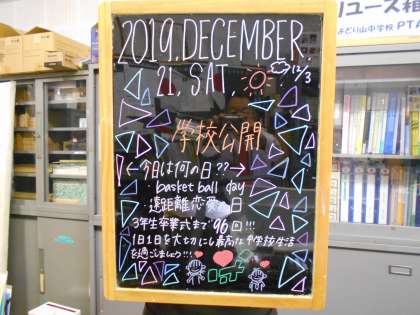 リユース箱
みどり山中学校 PTA
2019. DECEMBER.
21, SAT,
12/3
学校公開
←今日は何の日??→
basket ball day
遠距離恋愛の日
3年生卒業式まで96日!!!
1日1日を大切にし最高な中学校生活
を過ごしましょう!!!